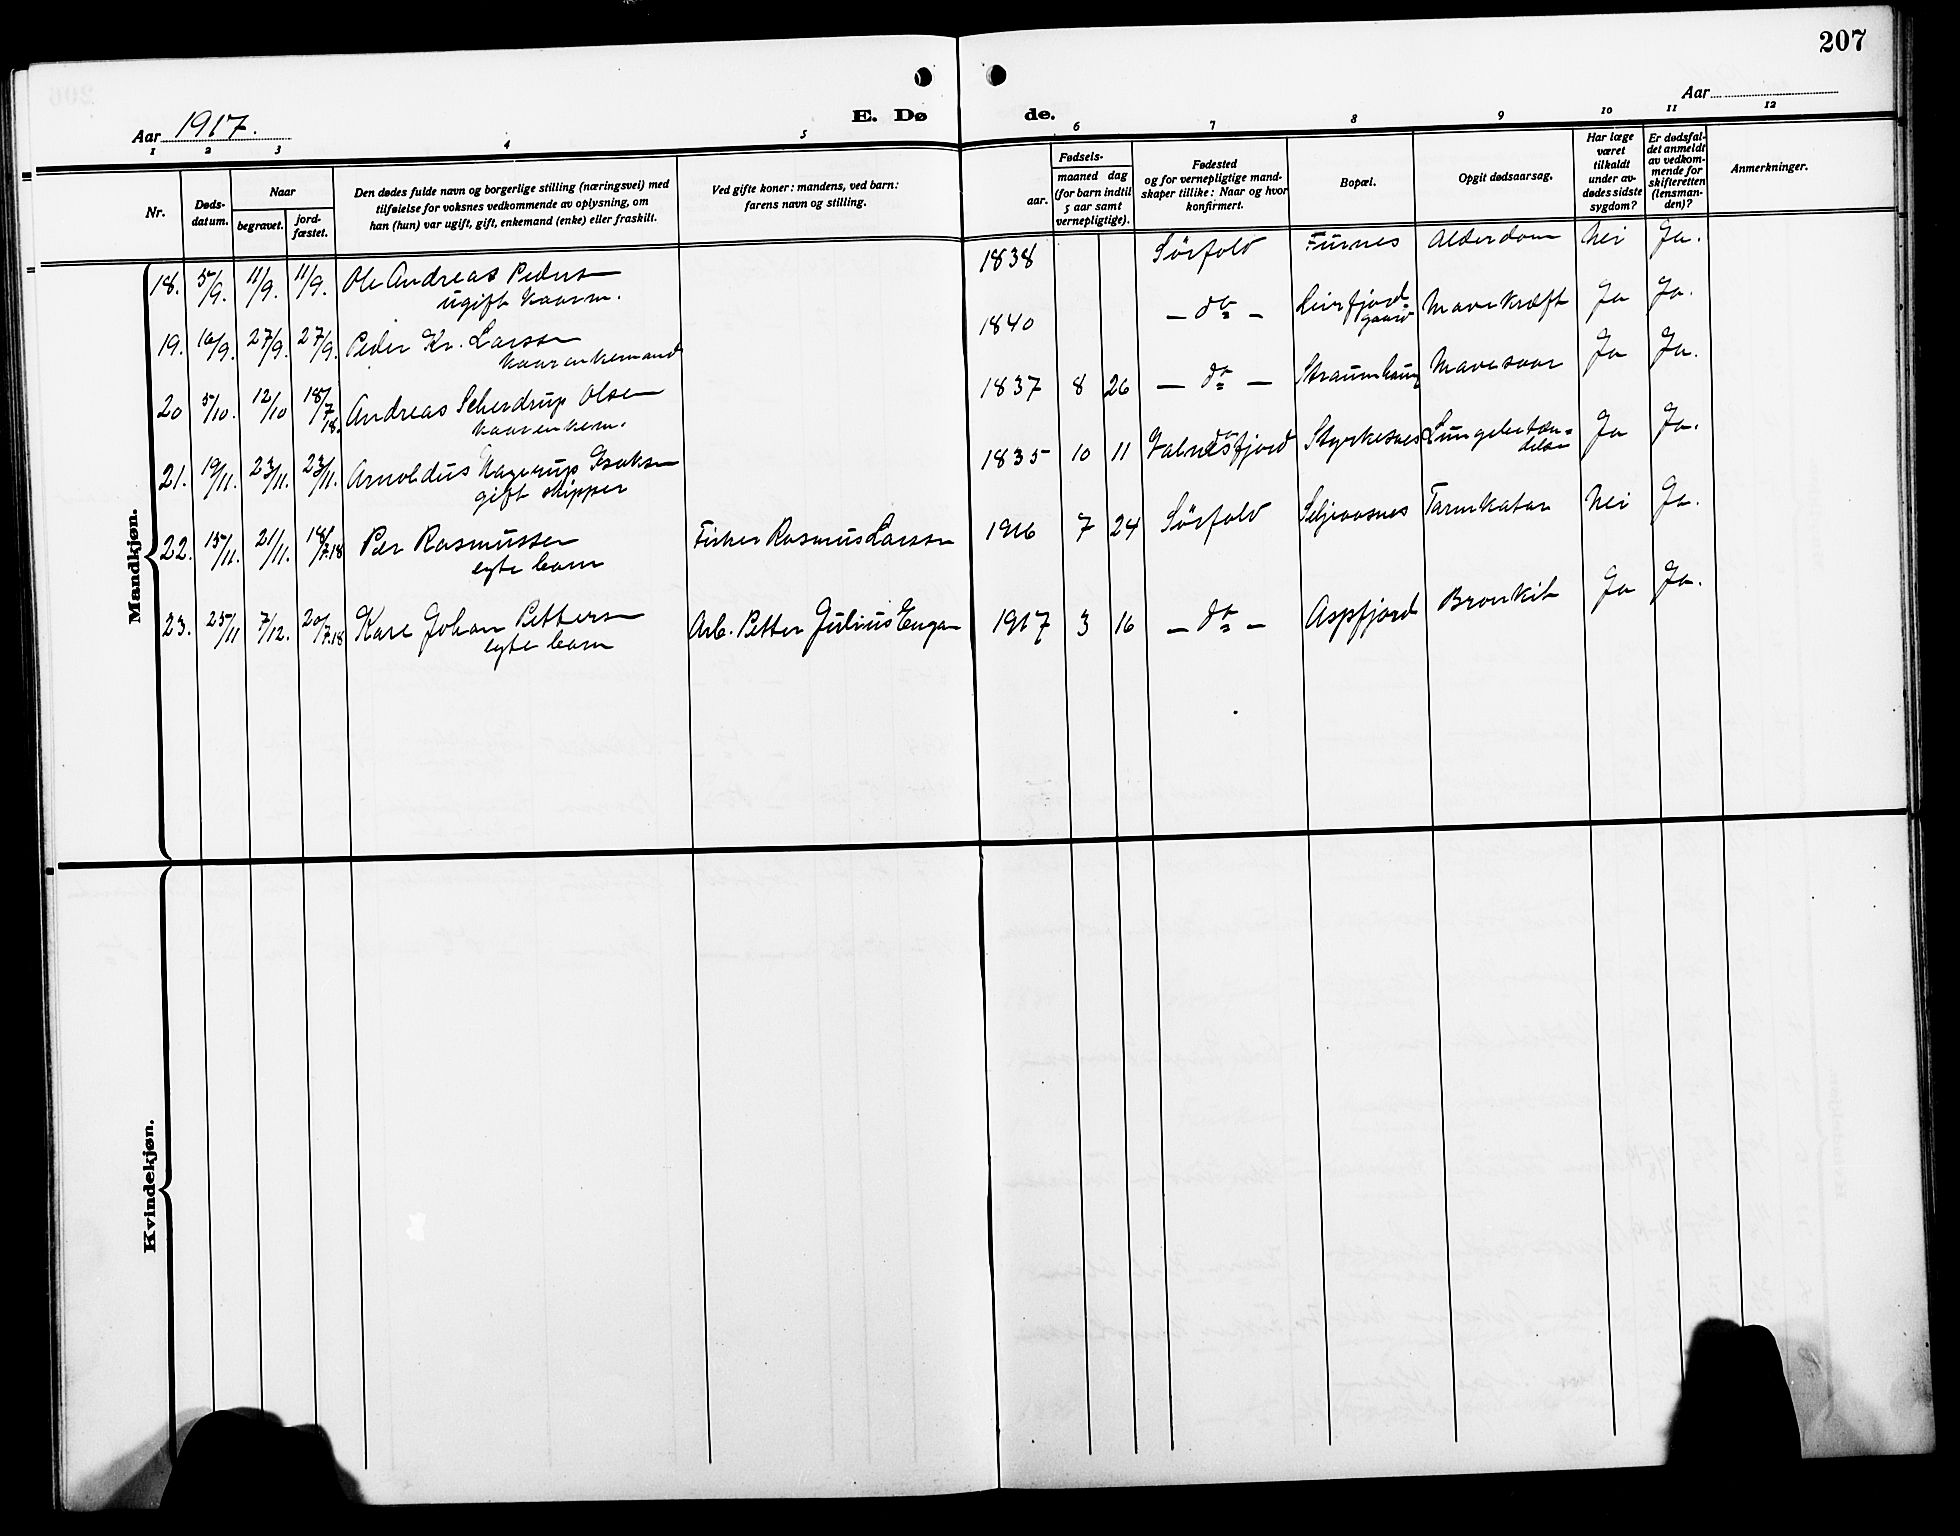 207
Aar 1917.
E. Dø de.
Aar
1 2 3 4 5 6 7 8 9 10 11 12
Nr.
Døds-
datum.
Naar
begravet.
jord-
fæstet.
Den dødes fulde navn og borgerlige stilling (næringsvei) med
tilføielse for voksnes vedkommende av oplysning, om
han (hun) var ugift, gift, enkemand (enke) eller fraskilt.
Ved gifte koner: mandens, ved barn:
farens navn og stilling.
Fødsels-
aar.
maaned dag
(for barn indtil
5 aar samt
vernepligtige).
Fødested
og for vernepligtige mand-
skaper tillike: Naar og hvor
konfirmert.
Bopæl.
Opgit dødsaarsag.
Har læge
været
tilkaldt
under av-
dødes sidste
sygdom?
Er dødsfal-
det anmeldt
av vedkom-
mende for
skifteretten
(lensman-
den)?
Anmerkninger.
Mandkjøn.
18. 5/9. 11/9. 11/9. Ole Andreas Pedersen 1838 Sörfold Furnes Alderdom Nei Ja.
ugift kaarm.
19. 16/9. 27/9. 27/9. Peder Kr. Larssen 1840 - do - Leirfjord Mavekræft Ja Ja.
gaard
kaarenkemand
20 5/10. 12/10 18/7 18. Andreas Scherdrup Olsen 1837 8 26 - do - Straumhaug Mavesaar Ja Ja.
kaarenkem.
21. 19/11. 23/11. 23/11. Arnoldus Hagerup Isaksen 1835 10 11 Valnesfjord Styrkesnes Lungebetæn=
delse Ja Ja.
gift skipper
22. 15/11. 21/11. 18/7.18 Per Rasmussen Fisker Rasmus Larssen 1916 7 24 Sörfold Seljeaasnes Tarmkatar Nei Ja.
egte barn
23. 25/11 7/12. 20/7.18 Kare Johan Pettersen Arb. Petter Julius Engan 1917 3 16 - do - Aspfjord Bronkit Ja Ja.
egte barn
Kvindekjøn.